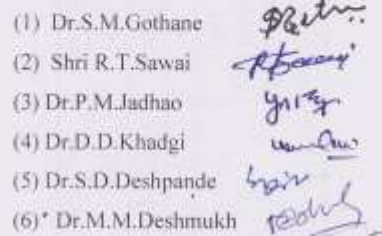 (1) Dr.S.M.Gothane
(2) Shri R.T.Sawai
(3) Dr.P.M.Jadhao
(4) Dr.D.D.Khadgi
(5) Dr.S.D.Deshpande
(6)* Dr.M.M.Deshmukh